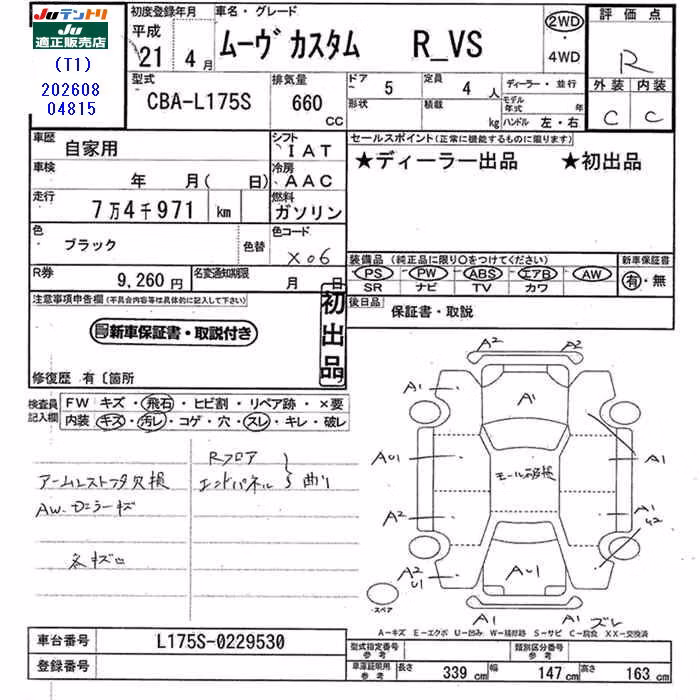 JUテントリ
JU適正販売店
(T1)
202608
04815
初度登録年月
平成
21年 4月
車名・グレード
ムーヴ カスタム R_VS
2WD
・
4WD
評価点
R
外装 内装
C C
型式
CBA-L175S
排気量
660
cc
ドア 5
形状
定員 4人
積載 kg
ディーラー・並行
モデル年式 年
ハンドル 左・右
車歴
自家用
シフト
IAT
車検
年 月( 日)
冷房
AAC
走行
7万4千971 km
燃料
ガソリン
色
ブラック
色替
色コード
X06
R券
9,260円
名変通知期限
月 日
セールスポイント(正常に機能するものに限ります)
★ディーラー出品 ★初出品
装備品 (純正品に限り〇をつけてください)
PS・PW・ABS・エアB・AW・
SR ナビ TV カワ
新車保証書
有・無
後日品
保証書・取説
注意事項申告欄(不具合内容等は具体的に記入して下さい)
新車保証書・取説付き
初出品
修復歴 有〔箇所
検査員
記入欄
FW キズ・飛石・ヒビ割・リペア跡・×要
内装・キズ・汚レ・コゲ・穴・スレ・キレ・破レ
Rフロア
エンドパネル 曲り
アームレストフタ欠損
AW・ミラーキズ
各キズ凹
A2 A2
A1 A1
AU1 モール破損 A1
A2 A1
42
A2
U1
AU1
A1 A1 ズレ
スペア
A-キズ E-エクボ U-凹み W-補修跡 S-サビ C-腐食 XX-交換済
車台番号
L175S-0229530
登録番号
型式指定番号
参考
類別区分番号
参考
車庫証明用
参考
長さ 339cm 幅 147cm 高さ 163cm